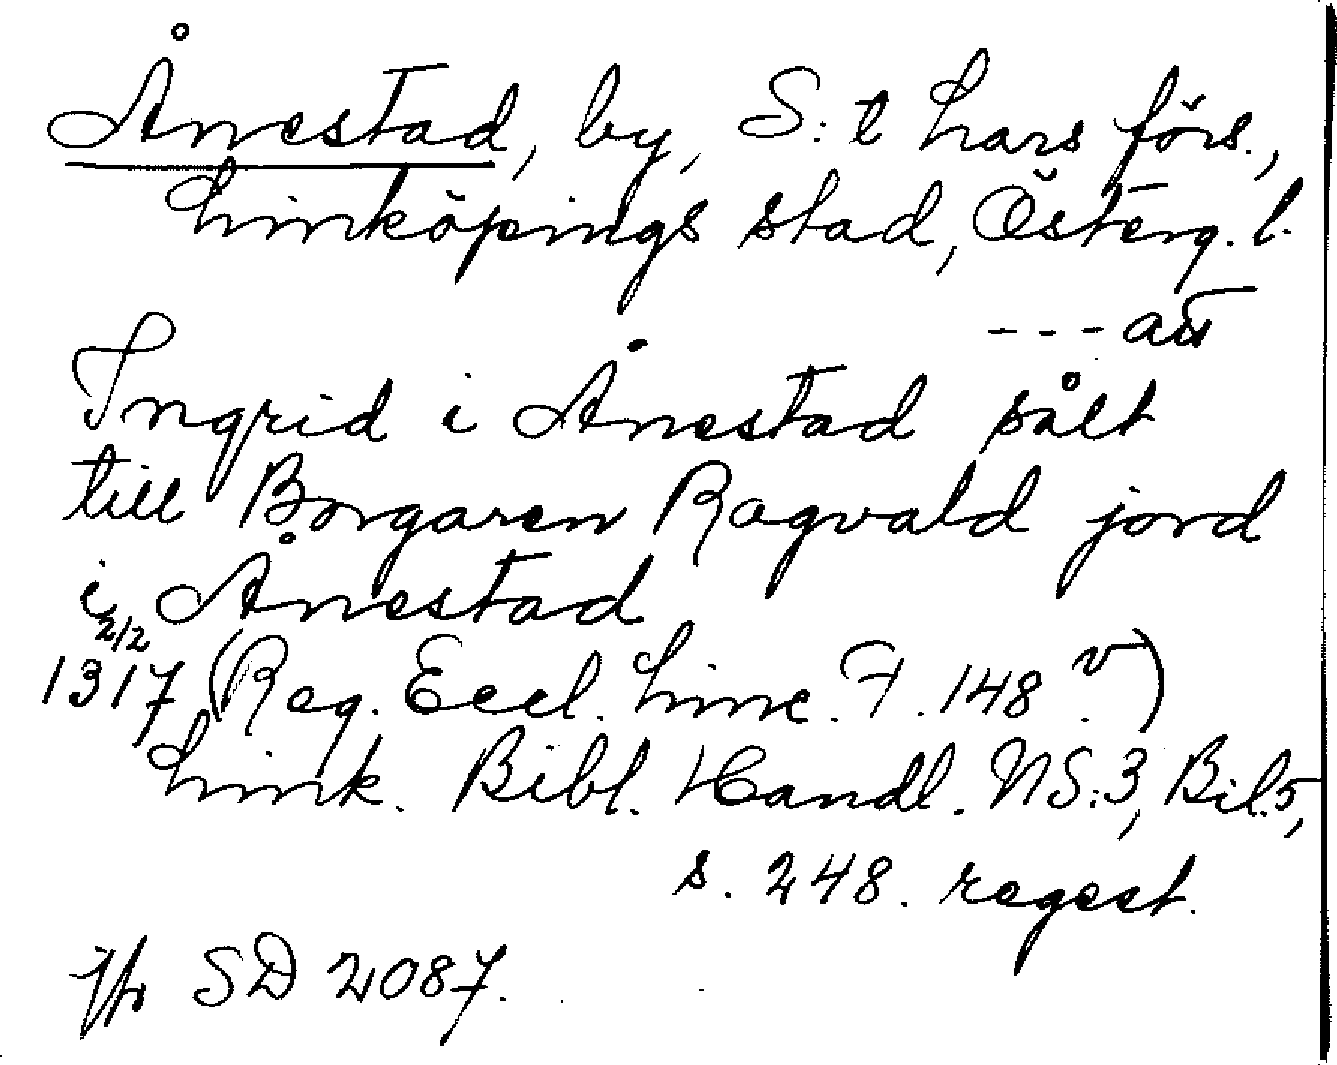 Ånestad, by, S:t Lars förs.,
Linköpings stad, Österg. l.
--- att
Ingrid i Ånestad sålt
till Borgaren Ragvald jord
i Ånestad
2/2
1317 (Reg. Eccl. Linc. F. 148 v.)
Link. Bibl. Handl. NS:3, Bil.5,
s. 248. regest.
jfr SD 2087.